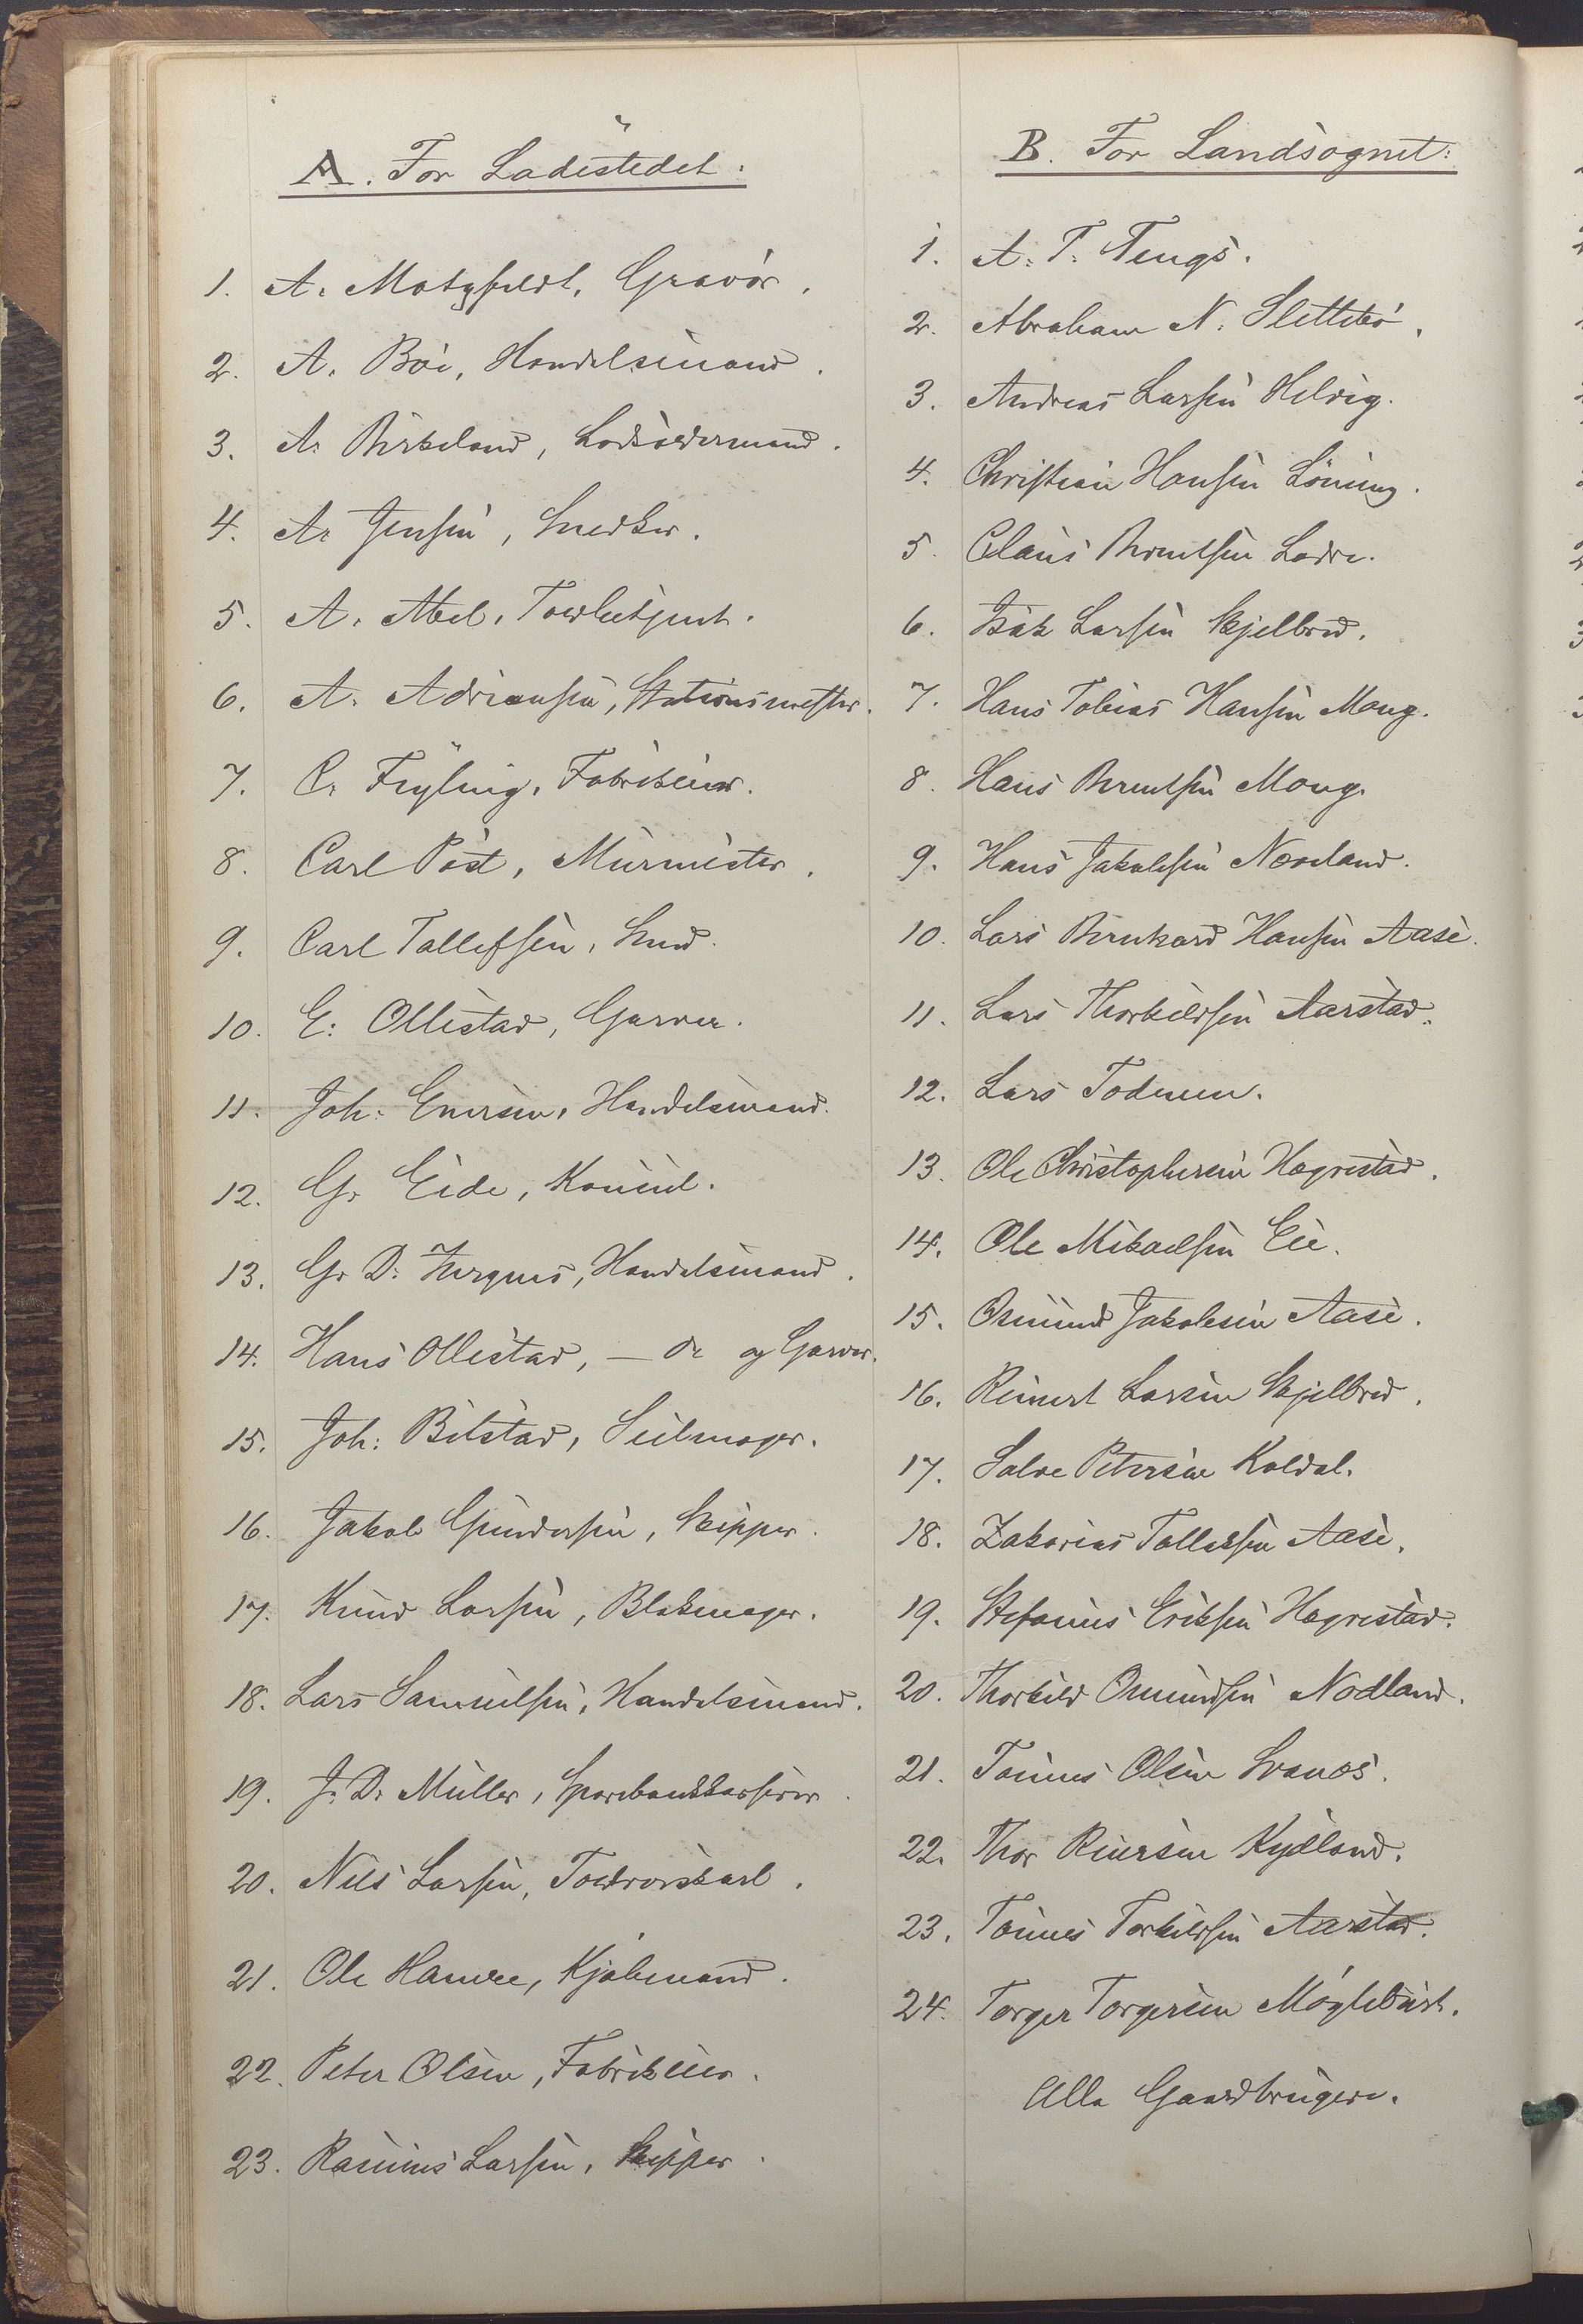 A. For Ladestedet:
1. A. Motzfeldt, Gravör.
2. A. Böe, Handelsmand.
3. A. Birkeland, Lodsoldermand.
4. A. Jensen, Snedker.
5. A. Abel, Toldbetjent.
6. A. Adriansen, Stationsmester.
7. C. Feyling, Fabrikeier.
8. Carl Post, Murmester.
9. Carl Tollefsen, Smed.
10. E. Ollestad, Garver.
11. Joh. Enersen, Handelsmand.
12. G. Eide, Konsul.
13. G. D. Handelsmand.
14. Hans Ollestad, — do og Garver.
15. Joh. Bilstad, Seilmager.
16. Jakob Gundersen, Skipper.
17. Knud Larsen, Blokmager.
18. Lars Samuelsen, Handelsmand.
19. J. D. Müller, Sparebankkasserer.
20. Nils Larsen, Toldrorskarl.
21. Ole Hamre, Kjöbmand.
22. Peter Olsen, Fabrikeier.
23. Rasmus Larsen, Skipper.
B. For Landsognet:
1. A. T. Tengs.
2. Abraham N. Slettebö.
3. Andreas Larsen Helvig.
4. Christian Hansen Löning.
5. Claus Berentsen Ladre.
6. Isak Larsen Skjelbred.
7. Hans Tobias Hansen Mong.
8. Hans Berentsen Mong.
9. Hans Jakobsen Nordland.
10. Lars Bernhard Hansen Aase.
11. Lars Thorkildsen Aarstad.
12. Lars Todnem.
13. Ole Christophersen Hægrestad.
14. Ole Mikaelsen Eie.
15. Osmund Jakobsen Aase.
16. Reinert Larsen Skjelbred.
17. Salve Petersen Koldal.
18. Zakarias Tollefsen Aase.
19. Stefanus Eriksen Hægrestad.
20. Thorkild Osmundsen Nodland.
21. Tönnes Olsen Svanes.
22. Thor Reiersen Kydland.
23. Tönnes Torkildsen Aarstad.
24. Torger Torgersen Möglebust.
Alle Gaardbrugere.